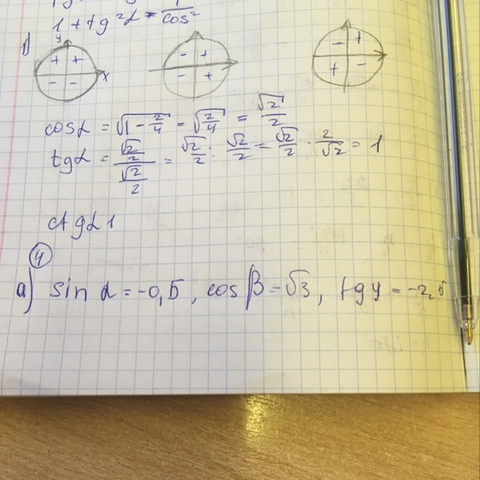 1 + tg²α = 1/cos²
1)
y
x
+ + - -
- + - +
- + + -
cosα = √1 - 2/4 = √2/4 = √2/2
tgα = √2/2 / √2/2 = √2/2 : √2/2 = √2/2 · 2/√2 = 1
ctgα 1
4
a) sin α = -0,5, cos β = √3, tg γ = -2,5